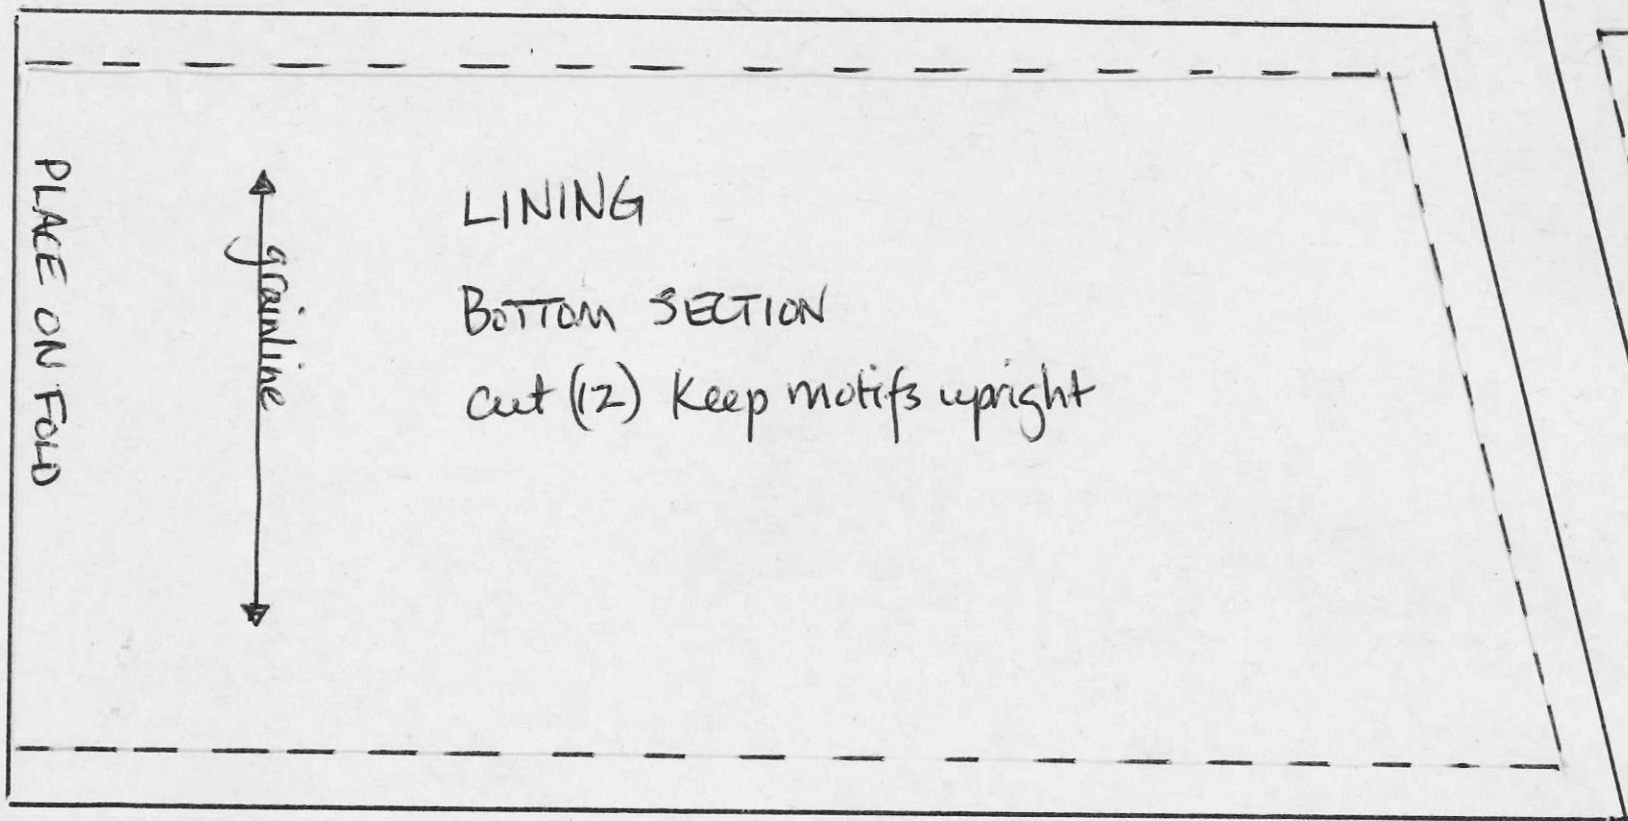 PLACE ON FOLD
grainline
LINING
BOTTOM SECTION
cut (12) Keep motifs upright